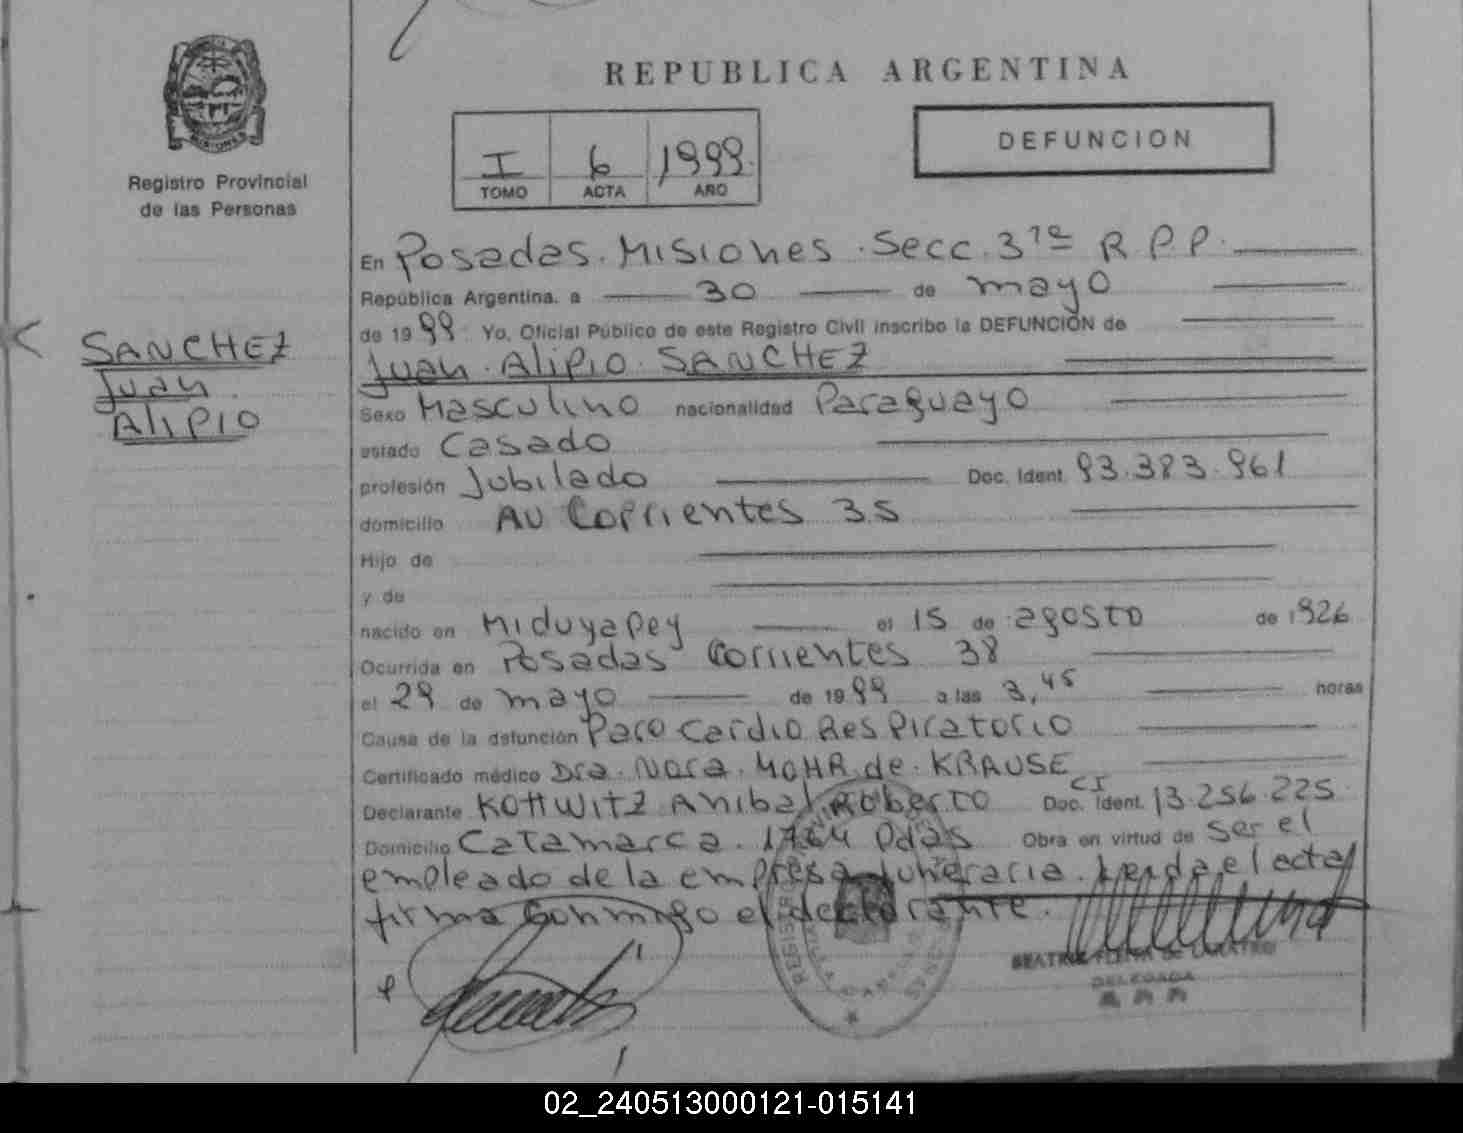 REPUBLICA ARGENTINA
DEFUNCION
I 6 1999
TOMO ACTA AÑO
MISIONES
Registro Provincial
de las Personas
SANCHEZ
Juan
Alipio
En Posadas. Misiones. Secc. 3ra R P P.
República Argentina. a 30 de mayo
de 1999. Yo, Oficial Público de este Registro Civil inscribo la DEFUNCIÓN de
Juan. Alipio. SANCHEZ
Sexo Masculino nacionalidad Paraguayo
estado Casado
profesión Jubilado Doc. Ident. 93.383.961
domicilio AU Corrientes 35
Hijo de
y de
nacido en Miduyapey el 15 de agosto de 1926
Ocurrida en Posadas Corrientes 38
el 29 de mayo de 1999 a las 3,45 horas
Causa de la defunción Paro Cardio Respiratorio
Certificado médico Dra. Nora. MOHR de. KRAUSE
Declarante KOTTWITZ Anibal Roberto Doc. Ident. CI 13.256.225
Domicilio Catamarca. 1764 Pdas Obra en virtud de ser el
empleado de la empresa funeraria. Leida el acta
firma conmigo el declarante.
DELEGADA
02_240513000121-015141